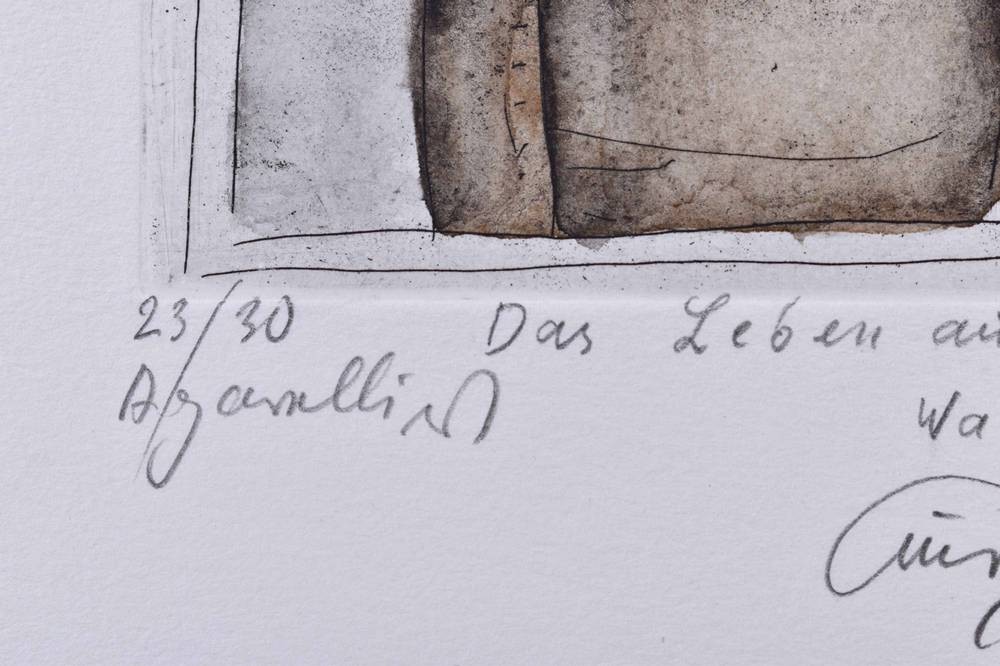 23/30 Das Leben au
Aquarelliert
Wa